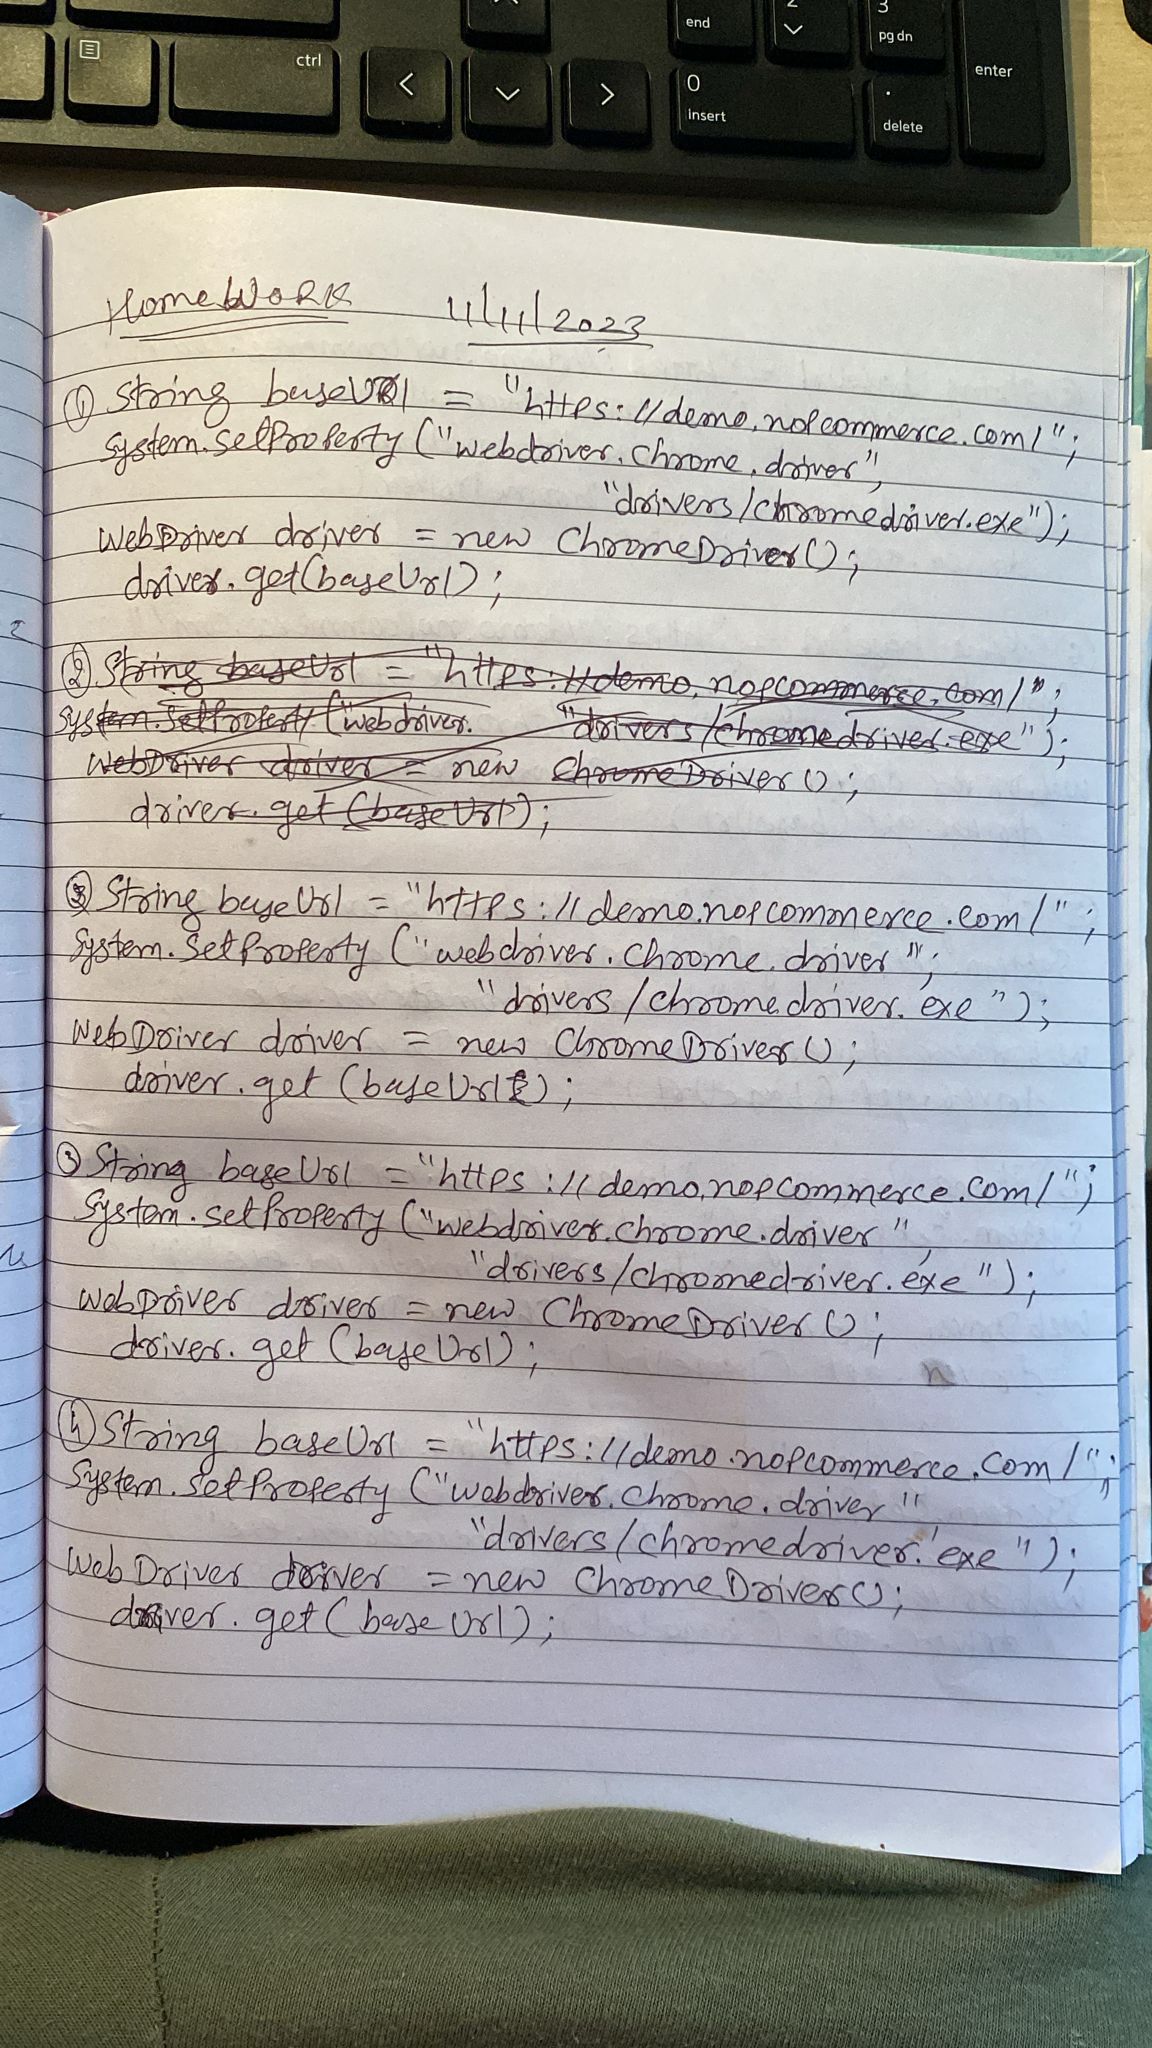 end
2
3
pg dn
enter
ctrl
0
Insert
.
delete
HomeWORK 11/11/2023
① String baseUrl = "https://demo.nopcommerce.com/";
System.setProperty ("webdriver.chrome.driver",
"drivers/chromedriver.exe");
WebDriver driver = new ChromeDriver();
driver.get(baseUrl);
② String baseUrl = "https://demo.nopcommerce.com/";
System.setProperty ("webdriver. "drivers/chromedriver.exe");
WebDriver driver = new ChromeDriver();
driver.get (baseUrl);
String baseUrl = "https://demo.nopcommerce.com/";
System.setProperty ("webdriver.chrome.driver";
"drivers/chromedriver.exe");
WebDriver driver = new ChromeDriver();
driver.get (baseUrl);
③ String baseUrl = "https://demo.nopcommerce.com/";
System.setProperty ("webdriver.chrome.driver",
"drivers/chromedriver.exe");
WebDriver driver = new ChromeDriver();
driver.get (baseUrl);
④ String baseUrl = "https://demo.nopcommerce.com/";
System.setProperty ("webdriver.chrome.driver"
"drivers/chromedriver.exe");
WebDriver driver = new ChromeDriver();
driver.get (baseUrl);